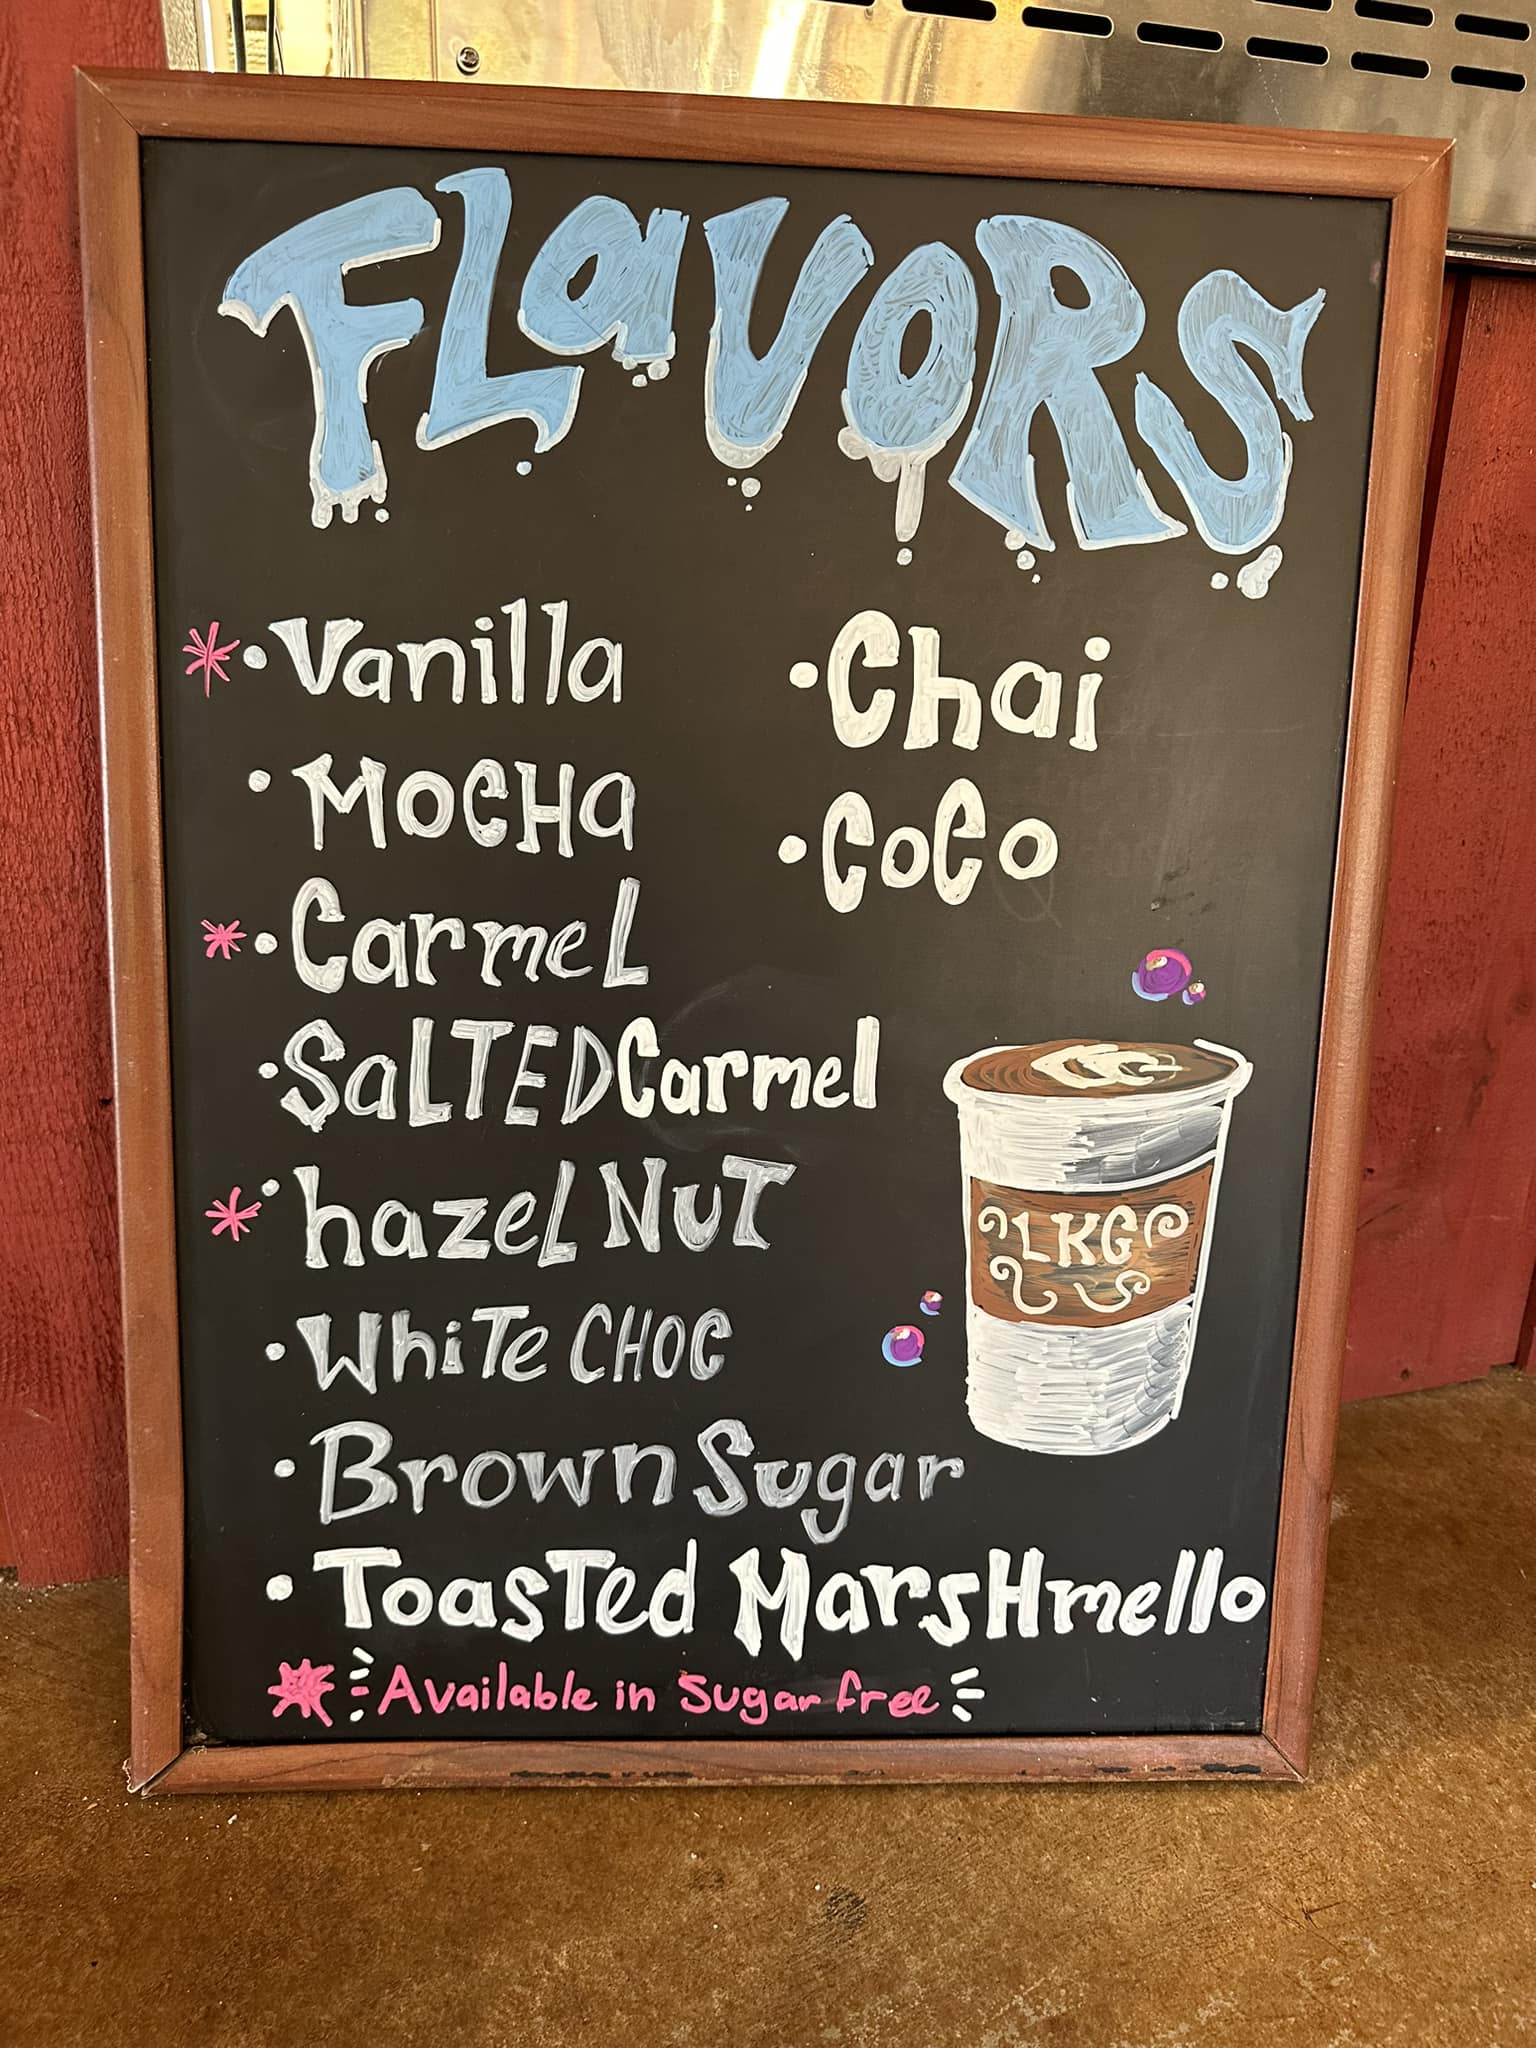 FLavORS
* • Vanilla
• MOCHa
* • CarmeL
• SaLTED Carmel
* • hazeLNuT
• WhiTe CHOC
• Brown Sugar
• ToasTed MarsHmello
• Chai
• CoCo
LKG
* Available in Sugar free